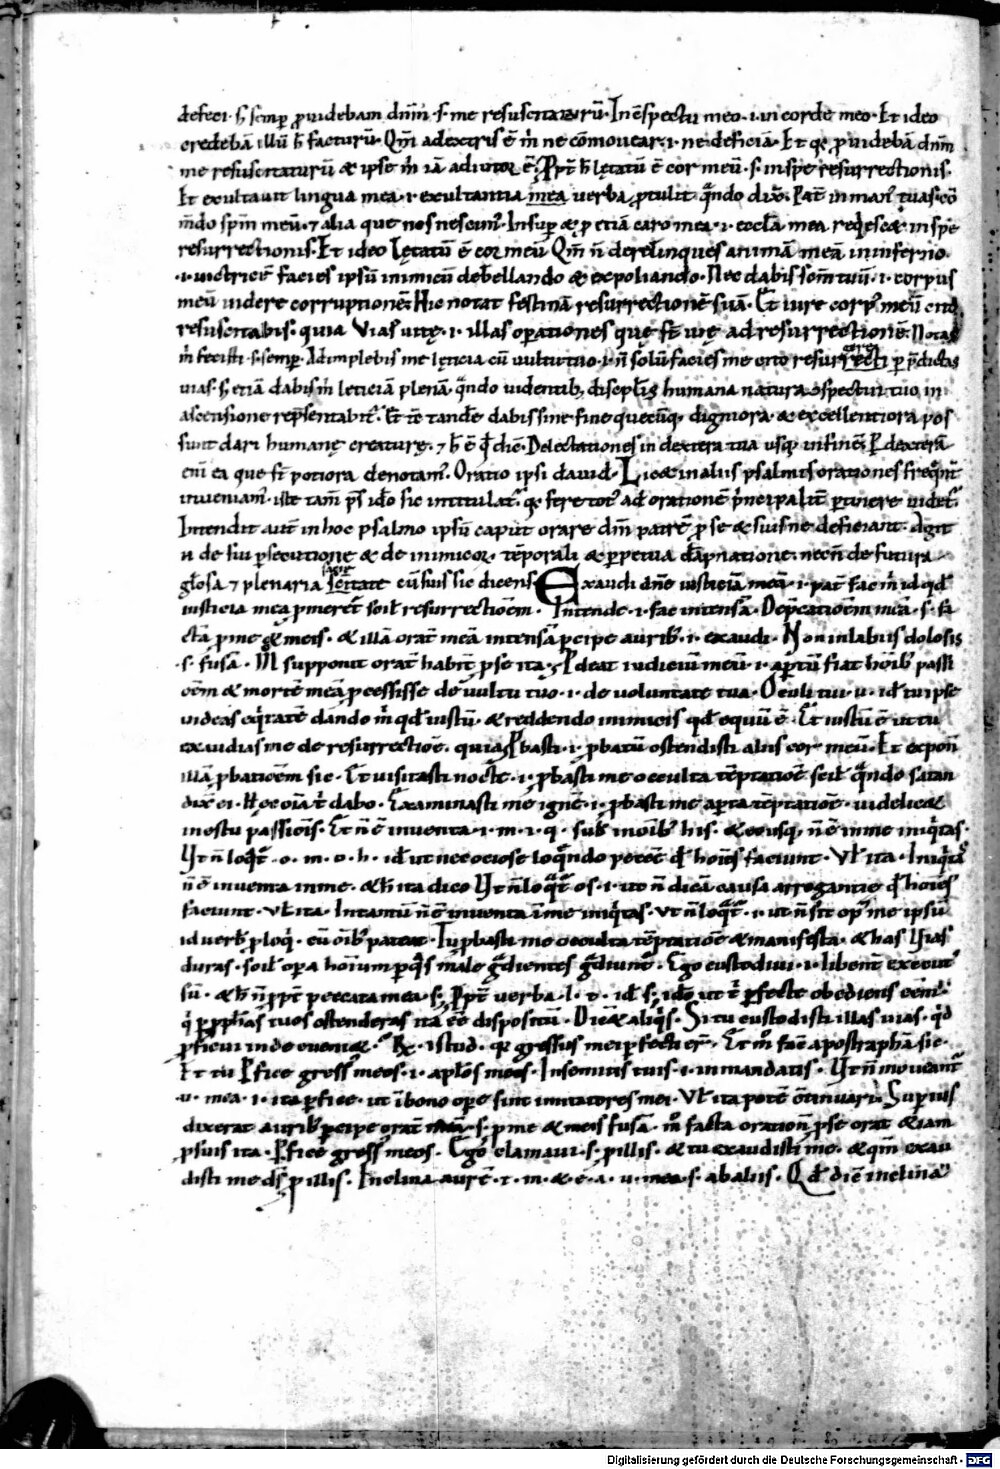 defeci · s; semp̄ p̱uidebam dnm̄ · s · me resuscitaturū · In c̄spectu meo · i · in corde meo · Et ideo
credebā illū h̄ facturū · Qm̄ a dextris ē m̄ ne cōmouear · i · ne deficiā · Et q; p̱uidebā dnm̄
me resuscitaturū & ipse m̄ iā adiutor ē · Ppt̄ h̄ lętatū ē cor meū · s · in spe resurrectionis ·
Et exultauit lingua mea · i · exultantia mea uerba p̱tulit q̄ndo dix̄ · Pat̄ in man᷒ tuas cō
m̄do sp̄m meū · ⁊ alia que nos nescim᷒ · Insup̄ & p̱ etiā caro mea · i · eccl̄a mea req̄escet in spe
resurrectionis · Et ideo Lętatū ē cor meū · Qm̄ n̄ derelinques animā meā in inferno ·
· i · uictricē facies ipsū inimicū debellando & expoliando · Nec dabis sc̄m tuū · i · corpus
meū uidere corruptionē Hic notat festinā resurrectionē suā · Et iure corp᷒ meū cito
resuscitabis · quia Vias uitę · i · illas op̱ationes quę st̄ uię ad resurrectionē · Notas
m̄ fecisti · s · semp̄ · Adimplebis me lęticia cū uultu tuo · i · n̄ solū facies me cito resurrecti p̱ p̄dictas
uias · s; etiā dabis m̄ leticiā plenā · q̄ndo uidentib; discipl̄is humana natura c̄spectui tuo in
ascensione rep̄sentabit᷒ · Et it̄ tande dabis sine fine quecūq; digniora · & excellentiora pos
sunt dari humanę creaturę · ⁊ h̄ ē qd̄ dic̄ · Delectationes in dextera tua usq; in finē · P dexterā
enī ea que st̄ potiora denotam᷒ · Oratio ipsi dauid · Licet in aliis psalmis orationes freq̄nt̄
inueniam᷒ · iste tam̄ ps̄ idō sic intitulat᷒ · q; fere tot᷒ ad orationē p̄ncipalit̄ p̱tinere uidet᷒ ·
Intendit aut̄ in hoc psalmo ipsū caput orare dm̄ patrē p̱ se & suis ne deficiant · Agit
u de sui p̱secutione & de inimicor᷒ · tēporali & p̱petua dāpnatione · necn̄ de futura
glosa · ⁊ plenaria sc̄itate cū suis sic dicens · Exaudi dn̄e iusticiā meā · i · pat̄ fac m̄ id qd̄
iusticia mea p̱meret᷒ scil᷒ resurrectiōem · Intende · i · fac intensā · Dep̄catiōem meā · s · fa
ctā p̱ me & meis · & illā orat̄ meā intensā p̱cipe aurib᷒ · i · exaudi · Non in labiis dolosis
· s · fusā · M supponit orat̄ habit̄ p̱ se ita · P deat iudiciū meū · i · ap̱tū fiat hōib᷒ passi
oēm & mortē meā p̱cessisse de uultu tuo · i · de uoluntate tua · Oculi tui · u · id᷒ tu ipse
uideas eq̄itatē dando m̄ qd̄ iustū · & reddendo inimicis qd̄ equū ē · Et iustū ē ut tu
exaudias me de resurrectiōe · quia P basti · i · p̱batū ostendisti aliis cor meū · Et expon̄
illā p̱batiōem sic · Et uisitasti nocte · i · p̱basti me occulta tēptatiōe scil᷒ q̄ndo satan
dix̄ ei · Hec oīa t̄ dabo · Examinasti me igne · i · p̱basti me ap̱ta tēptatiōe · uidelicet
in estu passiōis · Et n̄ ē inuenta · i · m · i · q · sub᷒ in oīb᷒ his · & ceusq; n̄ ē in me iniq̄tas ·
Vt n̄ loq̄t᷒ · o · m · o · h · id᷒ ut nec ociose loq̄ndo peccē qd̄ hoīes faciunt · Vl᷒ ita · Iniq̄tas
n̄ ē inuenta in me · & h̄ ita dico Vt n̄ loq̄t᷒ os · i · ut n̄ dicā causa arrogantie qd̄ hoīes
faciunt · Vl᷒ ita · In tantū n̄ ē inuenta ī me iniq̄tas · ut n̄ loq̄t᷒ · i · ut n̄ sit op᷒ me ipsū
id uerb᷒ p̱loq̄ · cū oīb᷒ pateat · Tu p̱basti me occulta tēptatiōe & manifesta · & has Vias
duras · scil᷒ op̱a hoīum p̱ q̄s male g̱dientes g̱diunt᷒ · Ego custodiui · i · libent̄ executus
sū · & h̄ n̄ ppt̄ peccata mea · s; Ppt̄ uerba · l · t · id᷒ s; idō ut t̄ p̱fecte obediens eēm ·
q̄ p̱ p̱phas tuos ostenderas ita eē dispositū · Dicet aliq̄s · Si tu custodisti illas uias · q̄d
p̱ficui inde eueniet · Rx · istud · q; gressus mei p̱fecti er̄t · Et m᷒ facē apostrapham sic ·
Et tu Pfice gress᷒ meos · i · aplōs meos · In semitis tuis · i · in mandatis · Vt n̄ moueant᷒
· u · mea · i · ita p̱fice · ut ī bono ope sint imitatores mei · Vl᷒ ita potē c̄tinuari · Sup̱ius
dixerat aurib᷒ p̱cipe orat̄ meā · s · p̱ me & meis fusā · m᷒ facta oration̄ p̱ se orat & iam
p̱ suis ita · Pfice gress᷒ meos · Ego clamaui · s · p̱ illis · & tu exaudisti me · & qm̄ exau
disti me ds̄ p̱ illis · Inclina aurē · t · m · & · e · a · u · mea · s · ab aliis · Qd̄ dic̄ inclina
Digitalisierung gefördert durch die Deutsche Forschungsgemeinschaft - DFG